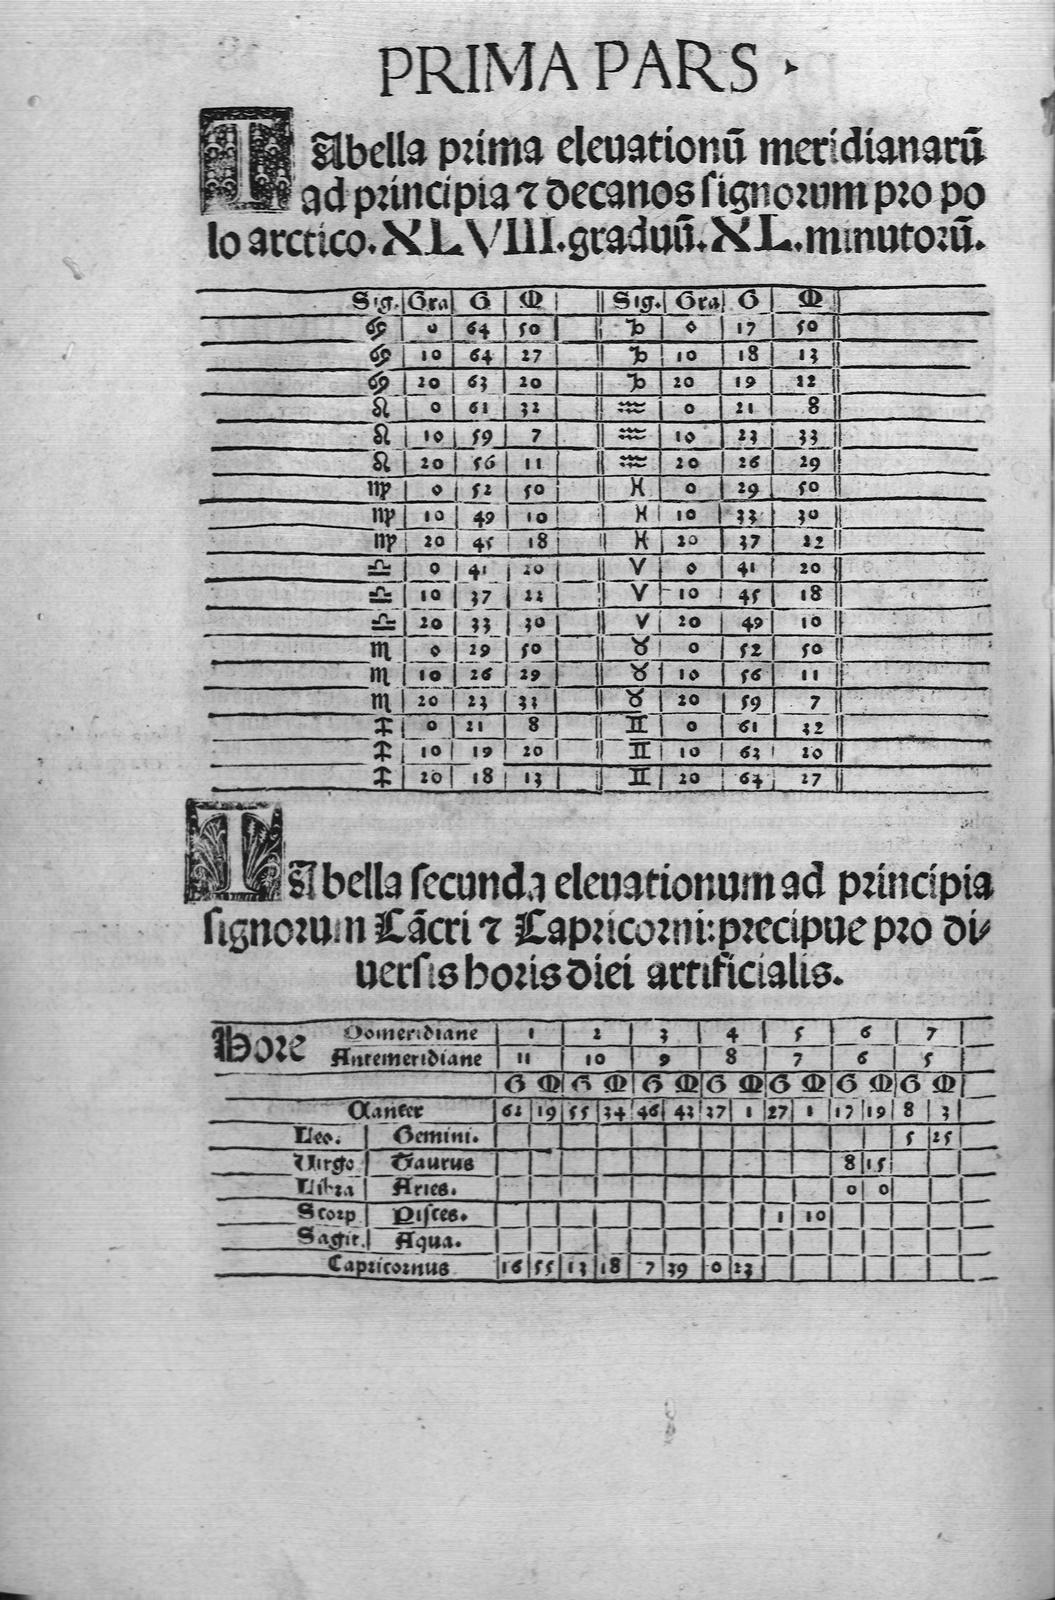 PRIMA PARS
TAbella prima eleuationū meridianarū
ad principia ⁊ decanos signorum pro po
lo arctico. XLVIII. graduū. XL. minutorū.
Sig. Gra G M Sig. Gra G M
♋ 0 64 50 ♑ 0 17 50
♋ 10 64 27 ♑ 10 18 13
♋ 20 63 20 ♑ 20 19 22
♌ 0 61 32 ♒ 0 21 8
♌ 10 59 7 ♒ 10 23 33
♌ 20 56 11 ♒ 20 26 29
♍ 0 52 50 ♓ 0 29 50
♍ 10 49 10 ♓ 10 33 30
♍ 20 45 18 ♓ 20 37 22
♎ 0 41 20 ♈ 0 41 20
♎ 10 37 22 ♈ 10 45 18
♎ 20 33 30 ♈ 20 49 10
♏ 0 29 50 ♉ 0 52 50
♏ 10 26 29 ♉ 10 56 11
♏ 20 23 33 ♉ 20 59 7
♐ 0 21 8 ♊ 0 61 32
♐ 10 19 20 ♊ 10 63 20
♐ 20 18 13 ♊ 20 64 27
TAbella secunda eleuationum ad principia
signorum Cācri ⁊ Capricorni: precipue pro di⸗
uersis horis diei artificialis.
Hore Pomeridiane 1 2 3 4 5 6 7
Antemeridiane 11 10 9 8 7 6 5
G M G M G M G M G M G M G M
Canter 62 19 55 34 46 43 37 1 27 1 17 19 8 3
Leo. Gemini. 5 25
Uirgo Taurus 8 15
Libra Aries. 0 0
Scorp Pisces. 1 10
Sagit. Aqua.
Capricornus 16 55 13 18 7 39 0 23